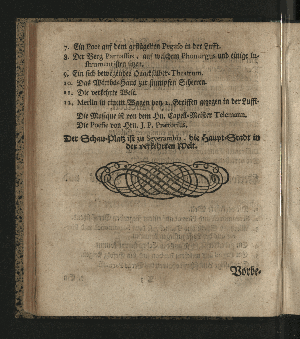 7. Ein Poet auf dem geflügelten Pegaso in der Lufft.
8. Der Berg Parnassus, auf welchem und einige In-
strumentisten sitzen.
9. Ein sich bewegendes Theatrum.
10. Das Wirths-Haus zur stumpffen Scheeren.
11. Die verkehrte Welt.
12. Merlin in einem Wagen von 2. Greiffen gezogen in der Lufft.
Die Musique ist von dem Hn. Capell-Meister Telemann.
Die Poesie von Hrn. J. P. Praetorius.
Der Schau-Platz ist zu Severambis, die Haupt-Stadt in
der verkehrten Welt.
Vorbe-